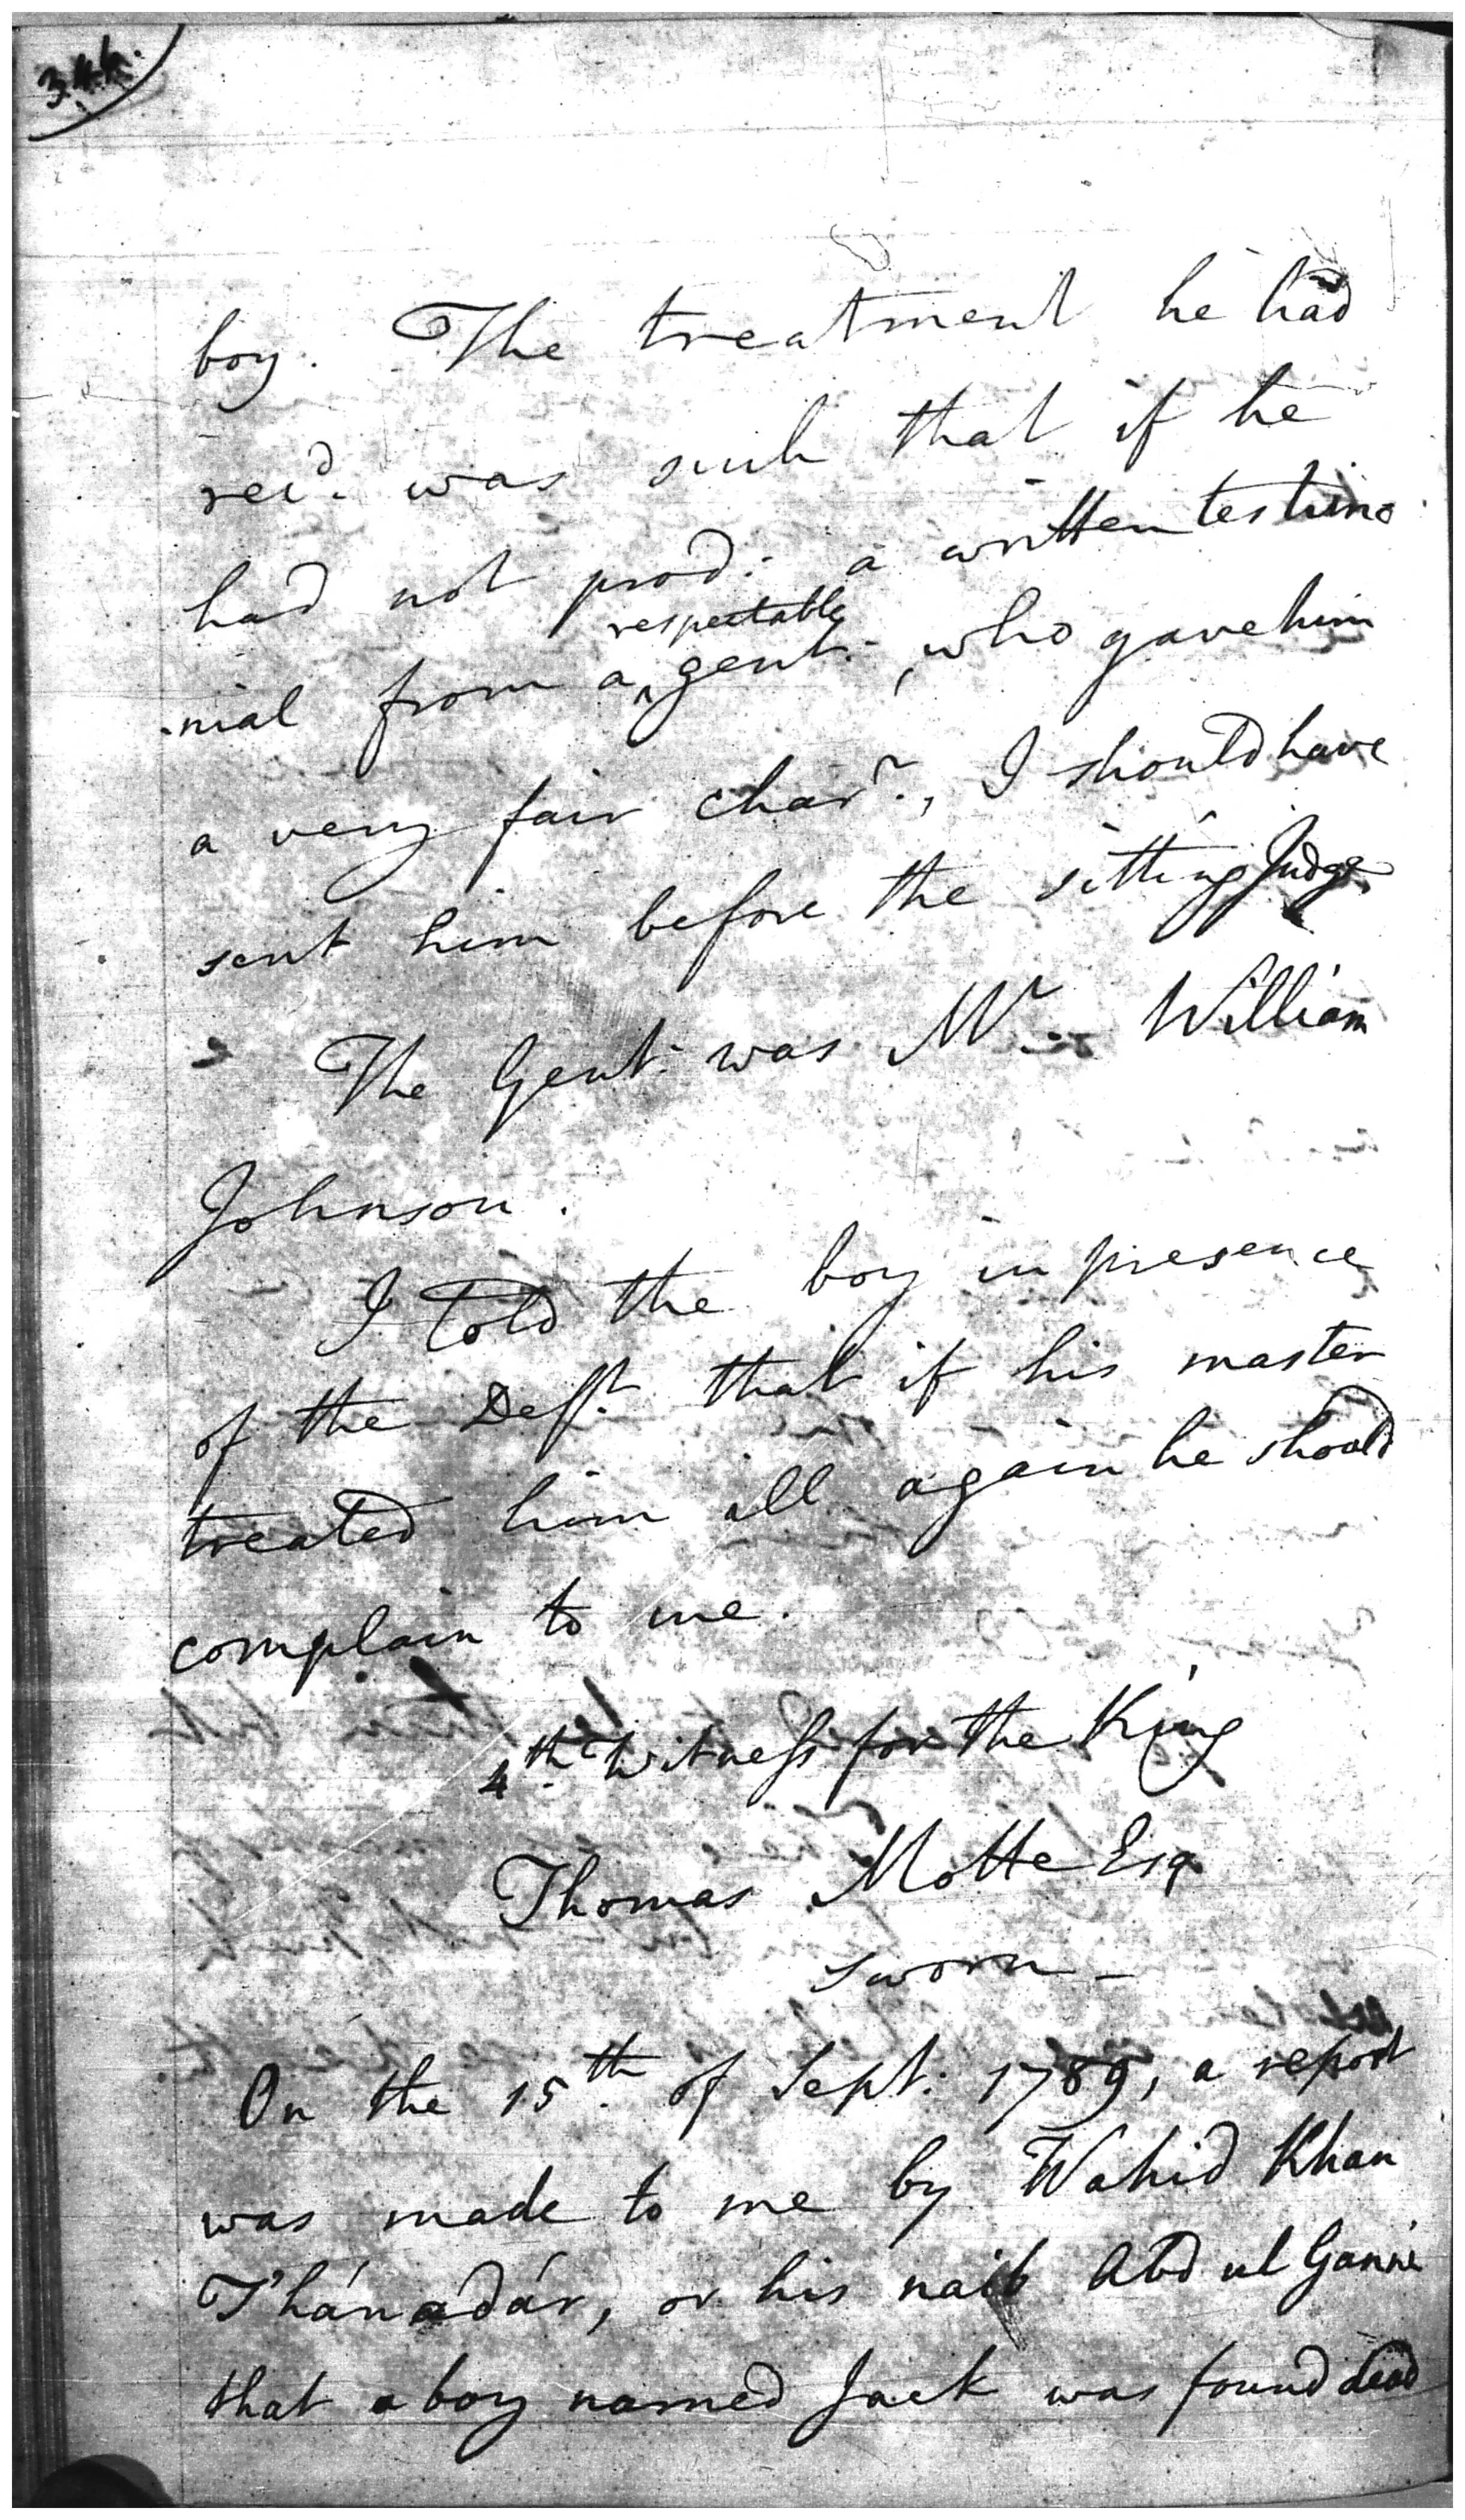 boy. The treatment he had
recd. was such that if he
had not prod: a written testimo
respectable
-nial from a ^ gent:, who gave him
a very fair charr., I should have
sent him before the sitting Judge.
The Gent: was Mr. William
Johnson.
I told the boy in presence
of the Deft. that if his master
treated him ill again he should
complain to me.
4th. Witness for the King
Thomas Motte Esq
sworn -
On the 15th. of Sept: 1789, a report
was made to me by Wahid Khan
T'hánadár, or his naib Abd ul Ganni
that a boy named Jack was found dead